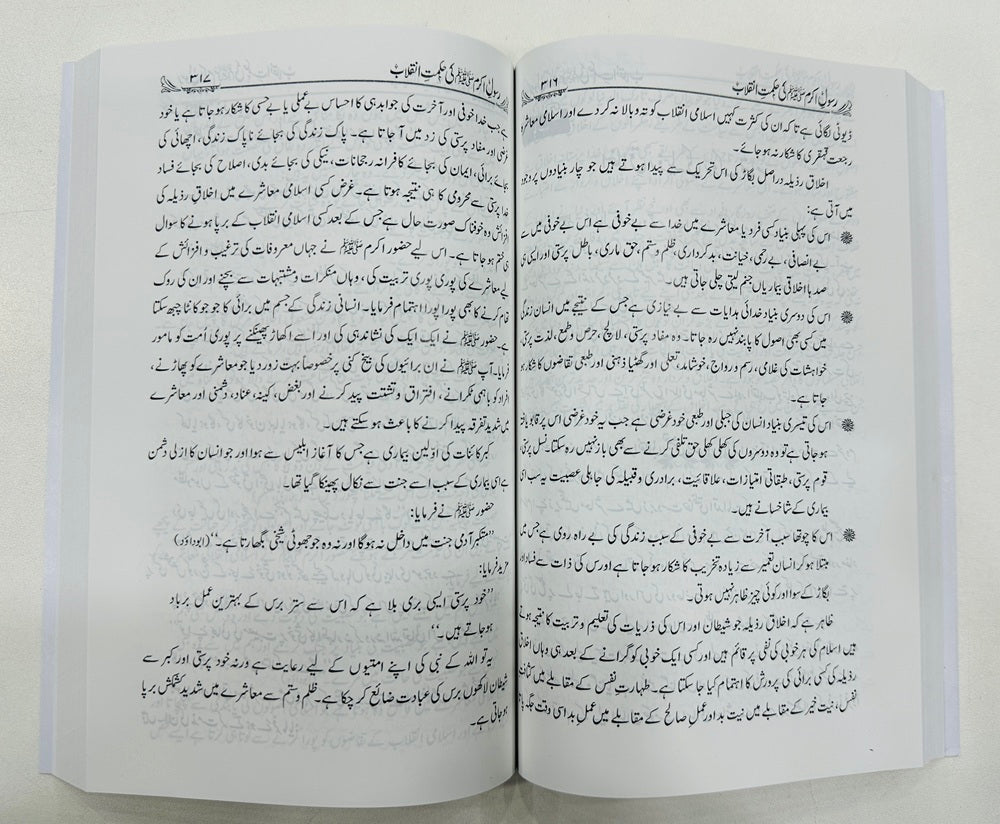 رسولِ اکرم ﷺ کی حکمتِ انقلاب
۳۱۶
ڈیوٹی لگائی ہے تاکہ ان کی کثرت کہیں اسلامی انقلاب کو تہ و بالا نہ کر دے اور اسلامی معاشرہ
رجعت قہقری کا شکار نہ ہو جائے۔
اخلاق رذیلہ دراصل بگاڑ کی اس تحریک سے پیدا ہوتے ہیں جو چار بنیادوں پر وجود
میں آتی ہے:
اس کی پہلی بنیاد کسی فرد یا معاشرے میں خدا سے بے خوفی ہے اس بے خوفی میں سے
بے انصافی، بے رحمی، خیانت، بدکرداری، ظلم و ستم، حق ماری، باطل پرستی اور ایسی ہی
صدہا اخلاقی بیماریاں جنم لیتی چلی جاتی ہیں۔
اس کی دوسری بنیاد خدائی ہدایات سے بے نیازی ہے جس کے نتیجے میں انسان زندگی
میں کسی بھی اصول کا پابند نہیں رہ جاتا۔ وہ مفاد پرستی، لالچ، حرص و طمع، لذت پرستی
خواہشات کی غلامی، رسم و رواج، خوشامد، تعلی اور گھٹیا ذہنی اور طبعی تقاضوں کا شکار ہو
جاتا ہے۔
اس کی تیسری بنیاد انسان کی جبلی اور طبعی خود غرضی ہے جب یہ خود غرضی اس پر قابو یافتہ
ہو جاتی ہے تو وہ دوسروں کی کھلی کھلی حق تلفی کرنے سے بھی باز نہیں رہ سکتا۔ نسل پرستی،
قوم پرستی، طبقاتی امتیازات، علاقائیت، برادری و قبیلہ کی جاہلی عصبیت یہ سب اسی
بیماری کے شاخسانے ہیں۔
اس کا چوتھا سبب آخرت سے بے خوفی کے سبب زندگی کی بے راہ روی ہے جس میں
مبتلا ہو کر انسان تعمیر سے زیادہ تخریب کا شکار ہو جاتا ہے اور س کی ذات سے فساد اور
بگاڑ کے سوا اور کوئی چیز ظاہر نہیں ہوتی۔
ظاہر ہے کہ اخلاق رذیلہ جو شیطان اور اس کی ذریات کی تعلیم و تربیت کا نتیجہ ہوتے
ہیں اسلام کی ہر خوبی کی نفی پر قائم ہیں اور کسی ایک خوبی کو گرانے کے بعد ہی وہاں اخلاق
رذیلہ کی کسی برائی کی پرورش کا اہتمام کیا جا سکتا ہے۔ طہارتِ نفس کے مقابلے میں کثافت
نفس، نیت خیر کے مقابلے میں نیت بد اور عمل صالح کے مقابلے میں عمل بد اسی وقت جگہ پاتا
رسولِ اکرم ﷺ کی حکمتِ انقلاب
۳۱۷
ہے جب خدا خوفی اور آخرت کی جوابدہی کا احساس بے عملی یا بے حسی کا شکار ہو جاتا ہے یا خود
غرضی اور مفاد پرستی کی زد میں آ جاتا ہے۔ پاک زندگی کی بجائے ناپاک زندگی، اچھائی کی
بجائے برائی، ایمان کی بجائے کافرانہ رجحانات، نیکی کی بجائے بدی، اصلاح کی بجائے فساد
خدا پرستی سے محرومی کا ہی نتیجہ ہوتا ہے۔ غرض کسی اسلامی معاشرے میں اخلاقِ رذیلہ کی
افزائش وہ خوفناک صورت حال ہے جس کے بعد کسی اسلامی انقلاب کے برپا ہونے کا سوال
ہی ختم ہو جاتا ہے۔ اس لیے حضور اکرم ﷺ نے جہاں معروفات کی ترغیب و افزائش کے
لیے معاشرے کی پوری پوری تربیت کی، وہاں منکرات و مشتبہات سے بچنے اور ان کی روک
تھام کرنے کا بھی پورا پورا اہتمام فرمایا۔ انسانی زندگی کے جسم میں برائی کا جو جو کانٹا چبھ سکتا
ہے۔ حضور ﷺ نے ایک ایک کی نشاندہی کی اور اسے اکھاڑ پھینکنے پر پوری اُمت کو مامور
فرمایا۔ آپ ﷺ نے ان برائیوں کی بیخ کنی پر خصوصاً بہت زور دیا جو معاشرے کو پھاڑنے،
افراد کو باہمی ٹکرانے، افتراق و تشتت پیدا کرنے اور بغض، کینہ، عناد، دشمنی اور معاشرے
میں شدید تفرقہ پیدا کرنے کا باعث ہو سکتے ہیں۔
کبر کائنات کی اوّلین بیماری ہے جس کا آغاز ابلیس سے ہوا اور جو انسان کا ازلی دشمن
ہے اسی بیماری کے سبب اسے جنت سے نکال پھینکا گیا تھا۔
حضور ﷺ نے فرمایا:
”متکبر آدمی جنت میں داخل نہ ہو گا اور نہ وہ جو جھوٹی شیخی بگھارتا ہے۔“ (ابوداؤد)
مزید فرمایا:
”خود پرستی ایسی بری بلا ہے کہ اِس سے ستر برس کے بہترین عمل برباد
ہو جاتے ہیں۔“
یہ تو اللہ کے نبی کی اپنے امتیوں کے لیے رعایت ہے ورنہ خود پرستی اور کبر سے
شیطان لاکھوں برس کی عبادت ضائع کر چکا ہے۔ ظلم و ستم سے معاشرے میں شدید کشمکش برپا
ہو جاتی ہے۔